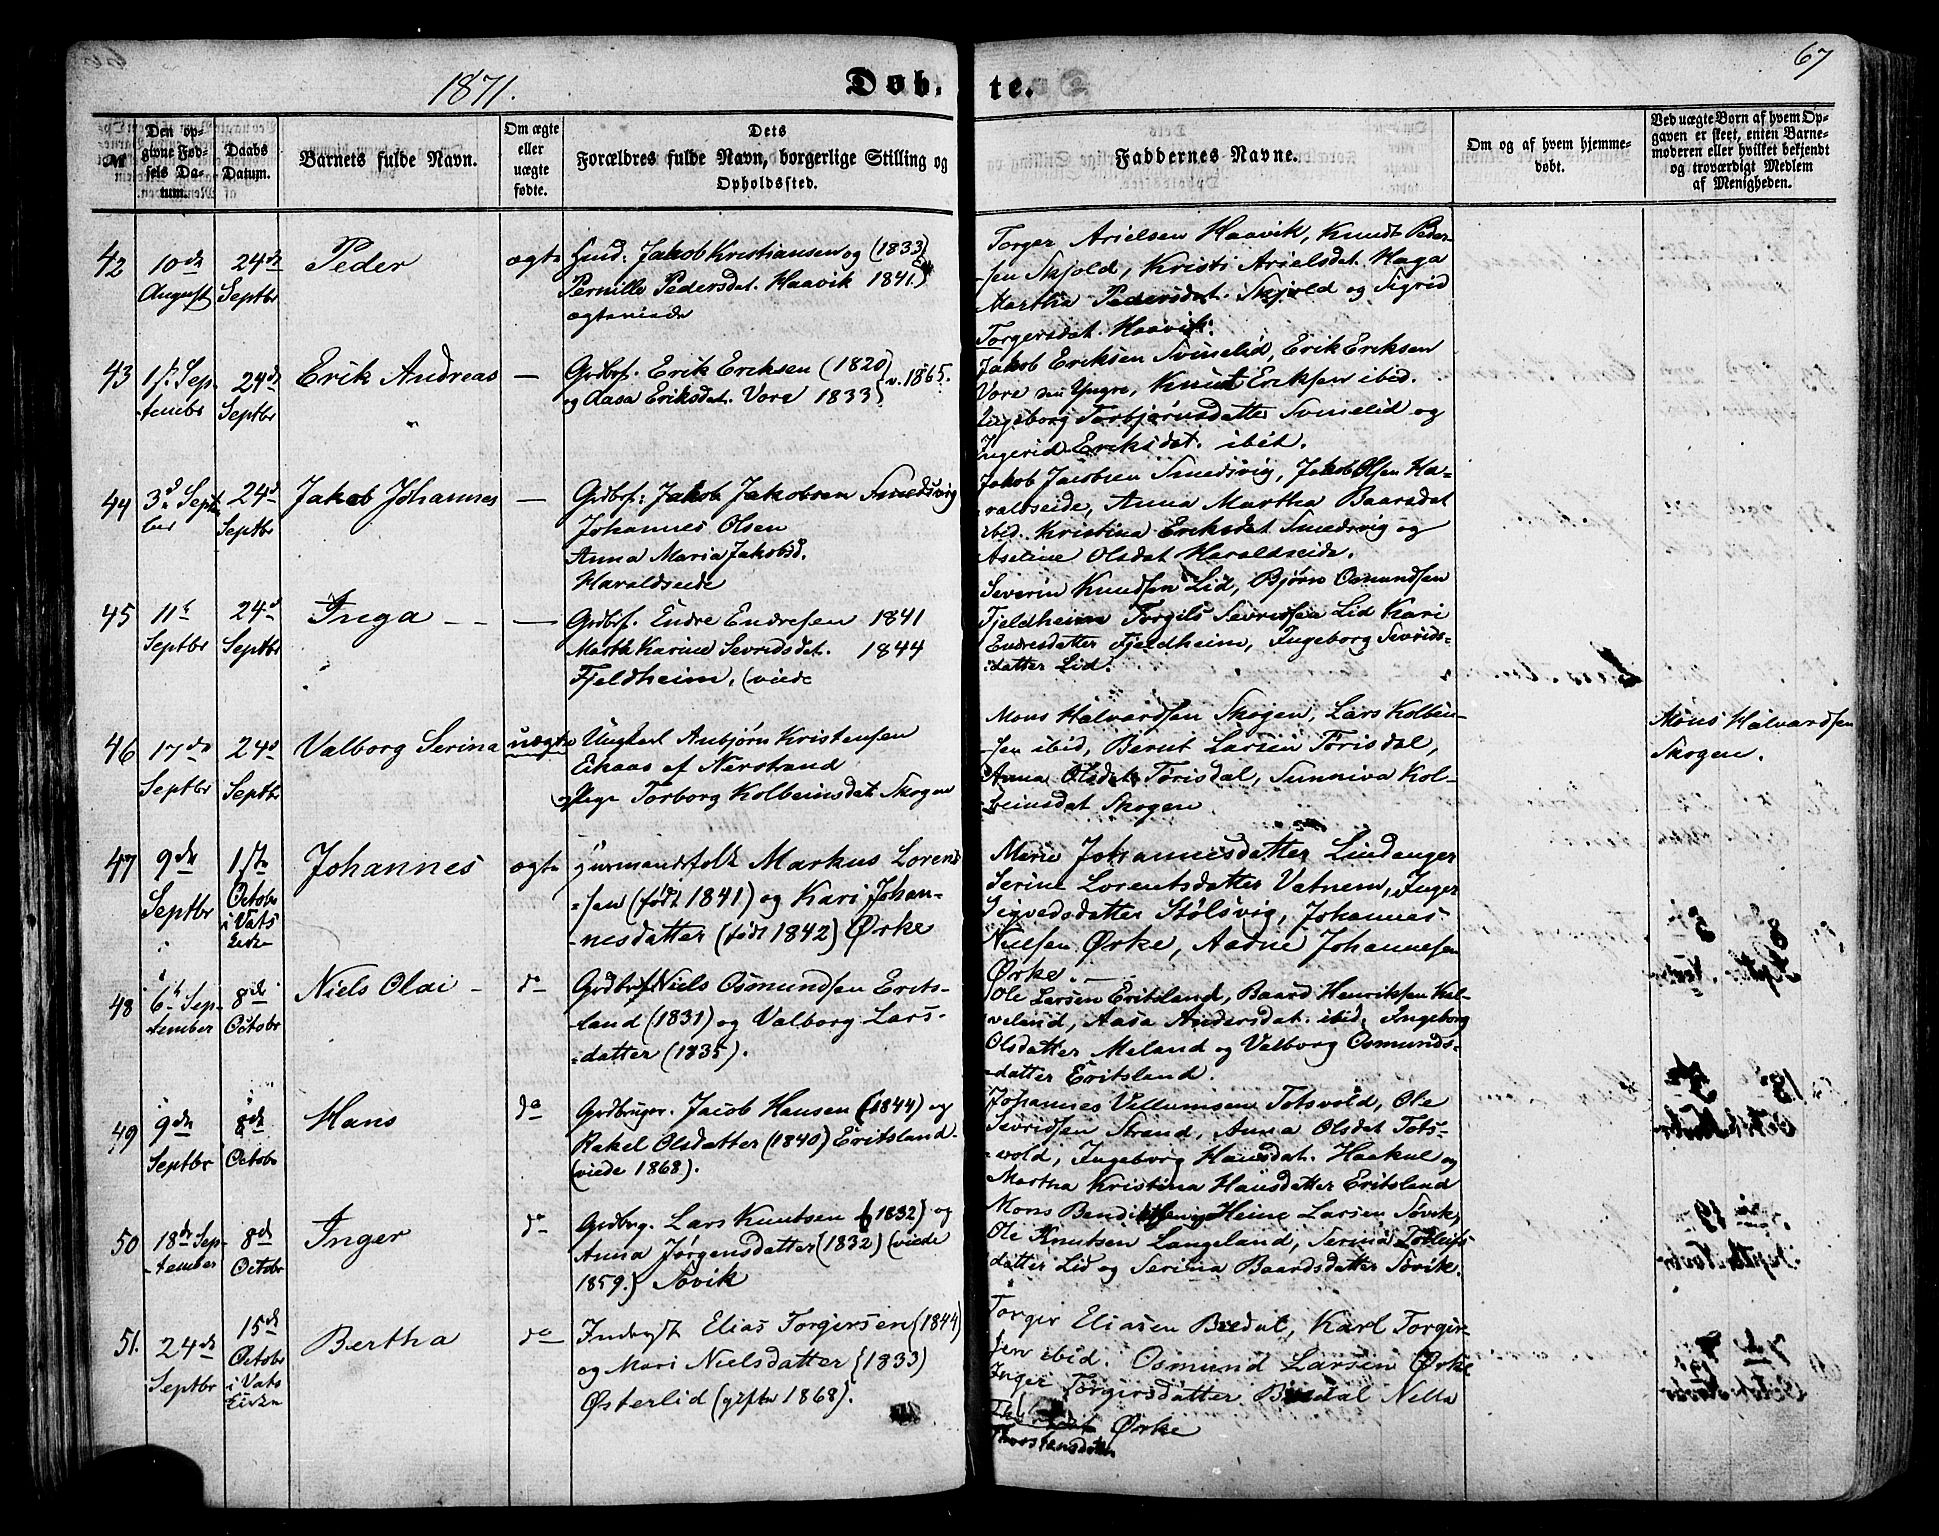 67
1871.
Døb-te.
№
Den opgivne Fødsels Datum.
Daabs Datum.
Barnets fulde Navn.
Om ægte eller uægte fødte.
Dets Forældres fulde Navn, borgerlige Stilling og Opholdssted.
Faddernes Navne.
Om og af hvem hjemmedøbt.
Ved uægte Børn af hvem Opgaven er skeet, enten Barnemoderen eller hvilket bekjendt og troværdigt Medlem af Menigheden.
42
10de August
24de Septbr
Peder
ægte
Husmd: Jakob Kristiansen og (1833)
Pernille Pedersdat. Haavik 1841.)
ægteviede
Torger Arielsen Haavik, Knudt Peder-
-sen Skjold, Kristi Arielsdat. Haga
Martha Pedersdat. Skjold og Sigrid
Torgersdat. Haavik.
43
1st. Sep-
-tembr
24de Septbr
Erik Andreas
—
Grdbr. Erik Eriksen (1820)
og Aasa Eriksdat. Vore 1833) v. 1865.
Jakob Eriksen Svinelid, Erik Eriksen
Vore den Yngre, Knut Eriksen ibid.
Ingeborg Torbjørnsdatter Svinelid og
Ingerid Eriksdat. ibid.
44
3d Septbr
24d Septbr
Jakob Johannes
—
Grdbr: Jakob Jakobsen Smedsvig
Johannes Olsen
Anna Maria Jakobsd.
Haraldseide
Jakob Jacobsen Smedsvig, Jakob Olsen Ha-
-raldseide, Anna Martha Baarsdat
ibid. Kristina Eriksdat Smedsvig og
Aseline Olsdat Haraldseide.
45
11te Septbr
24d Septbr
Inga
—
Grdbr. Endre Endresen 1841
Marth Karine Sevridsdat. 1844
Fjeldheim, (viede
Severin Knudsen Lid, Bjørn Osmundsen
Fjeldheim Torgils Sevridsen Lid Kari
Endresdatter Fjeldheim, Ingeborg Sevrids-
datter Lid.
46
17de Septbr
24d Septbr
Valborg Serina
uægte
Ungkarl Anbjørn Kristensen
Eikaas af Nerstrand
og Pige Torborg Kolbeinsdat Skogen
Mons Halvardsen Skogen, Lars Kolbein-
-sen ibid, Bernt Larsen Torisdal,
Anna Olsdat Torisdal, Sunniva Kol-
-beinsdat Skogen
Mons Halvardsen
Skogen.
47
9de Septbr
1ste Octobr i Vats Kirke
Johannes
ægte
Husmandsfolk Markus Lorend-
-sen (født 1841) og Kari Johan-
-nesdatter (født 1842) Ørke
Marie Johannesdatter Lindanger
Serine Lorentsdatter Vatnem, Inger
Sigvedsdatter Stølsvig, Johannes
Nielsen Ørke, Aadne Johannesen
Ørke.
48
6te Sep-
-tember
8de Octobr
Niels Olai
do
Grdbr Niels Osmundsen Erits-
-land (1831) og Valborg Lars-
-datter (1835).
Ole Larsen Eritsland, Baard Henriksen Kal-
-veland, Aasa Andersdat. ibid. Ingeborg
Olsdatter Meland og Valborg Osmunds-
-datter Eritsland.
49
9de Septbr
8de Octobr
Hans
do
Grdbruger. Jacob Hansen (1844) og
Rakel Olsdatter (1840) Eritsland.
(viede 1868).
Johannes Villumsen Totsvold, Ole
Sevridsen Strand, Anna Olsdat Tots-
-vold, Ingeborg Hansdat. Haakul og
Martha Kristina Hansdatter Eritsland
50
18de Sep-
-tember
8de Octobr
Inger
do
Grdbrg. Lars Knutsen (1832) og
Anna Jørgensdatter (1832) (viede
1859.) Søvik
Mons Heine Larsen Søvik,
Ole Knutsen Langeland, Serina Tollefs-
datter Lid og Serina Baardsdatter Søvik.
51.
24de Septbr
15de Octobr i Vats Kirke
Bertha
do
Inderst Elias Torgersen (1844)
og Mari Nielsdatter (1833)
Østerlid (gifte 1868).
Torger Eliasen Bredal, Karl Torger-
sen ibid. Osmund Larsen Ørke
Inger Torgersdatter Bredal Nella
Thorstensdatter Ørke